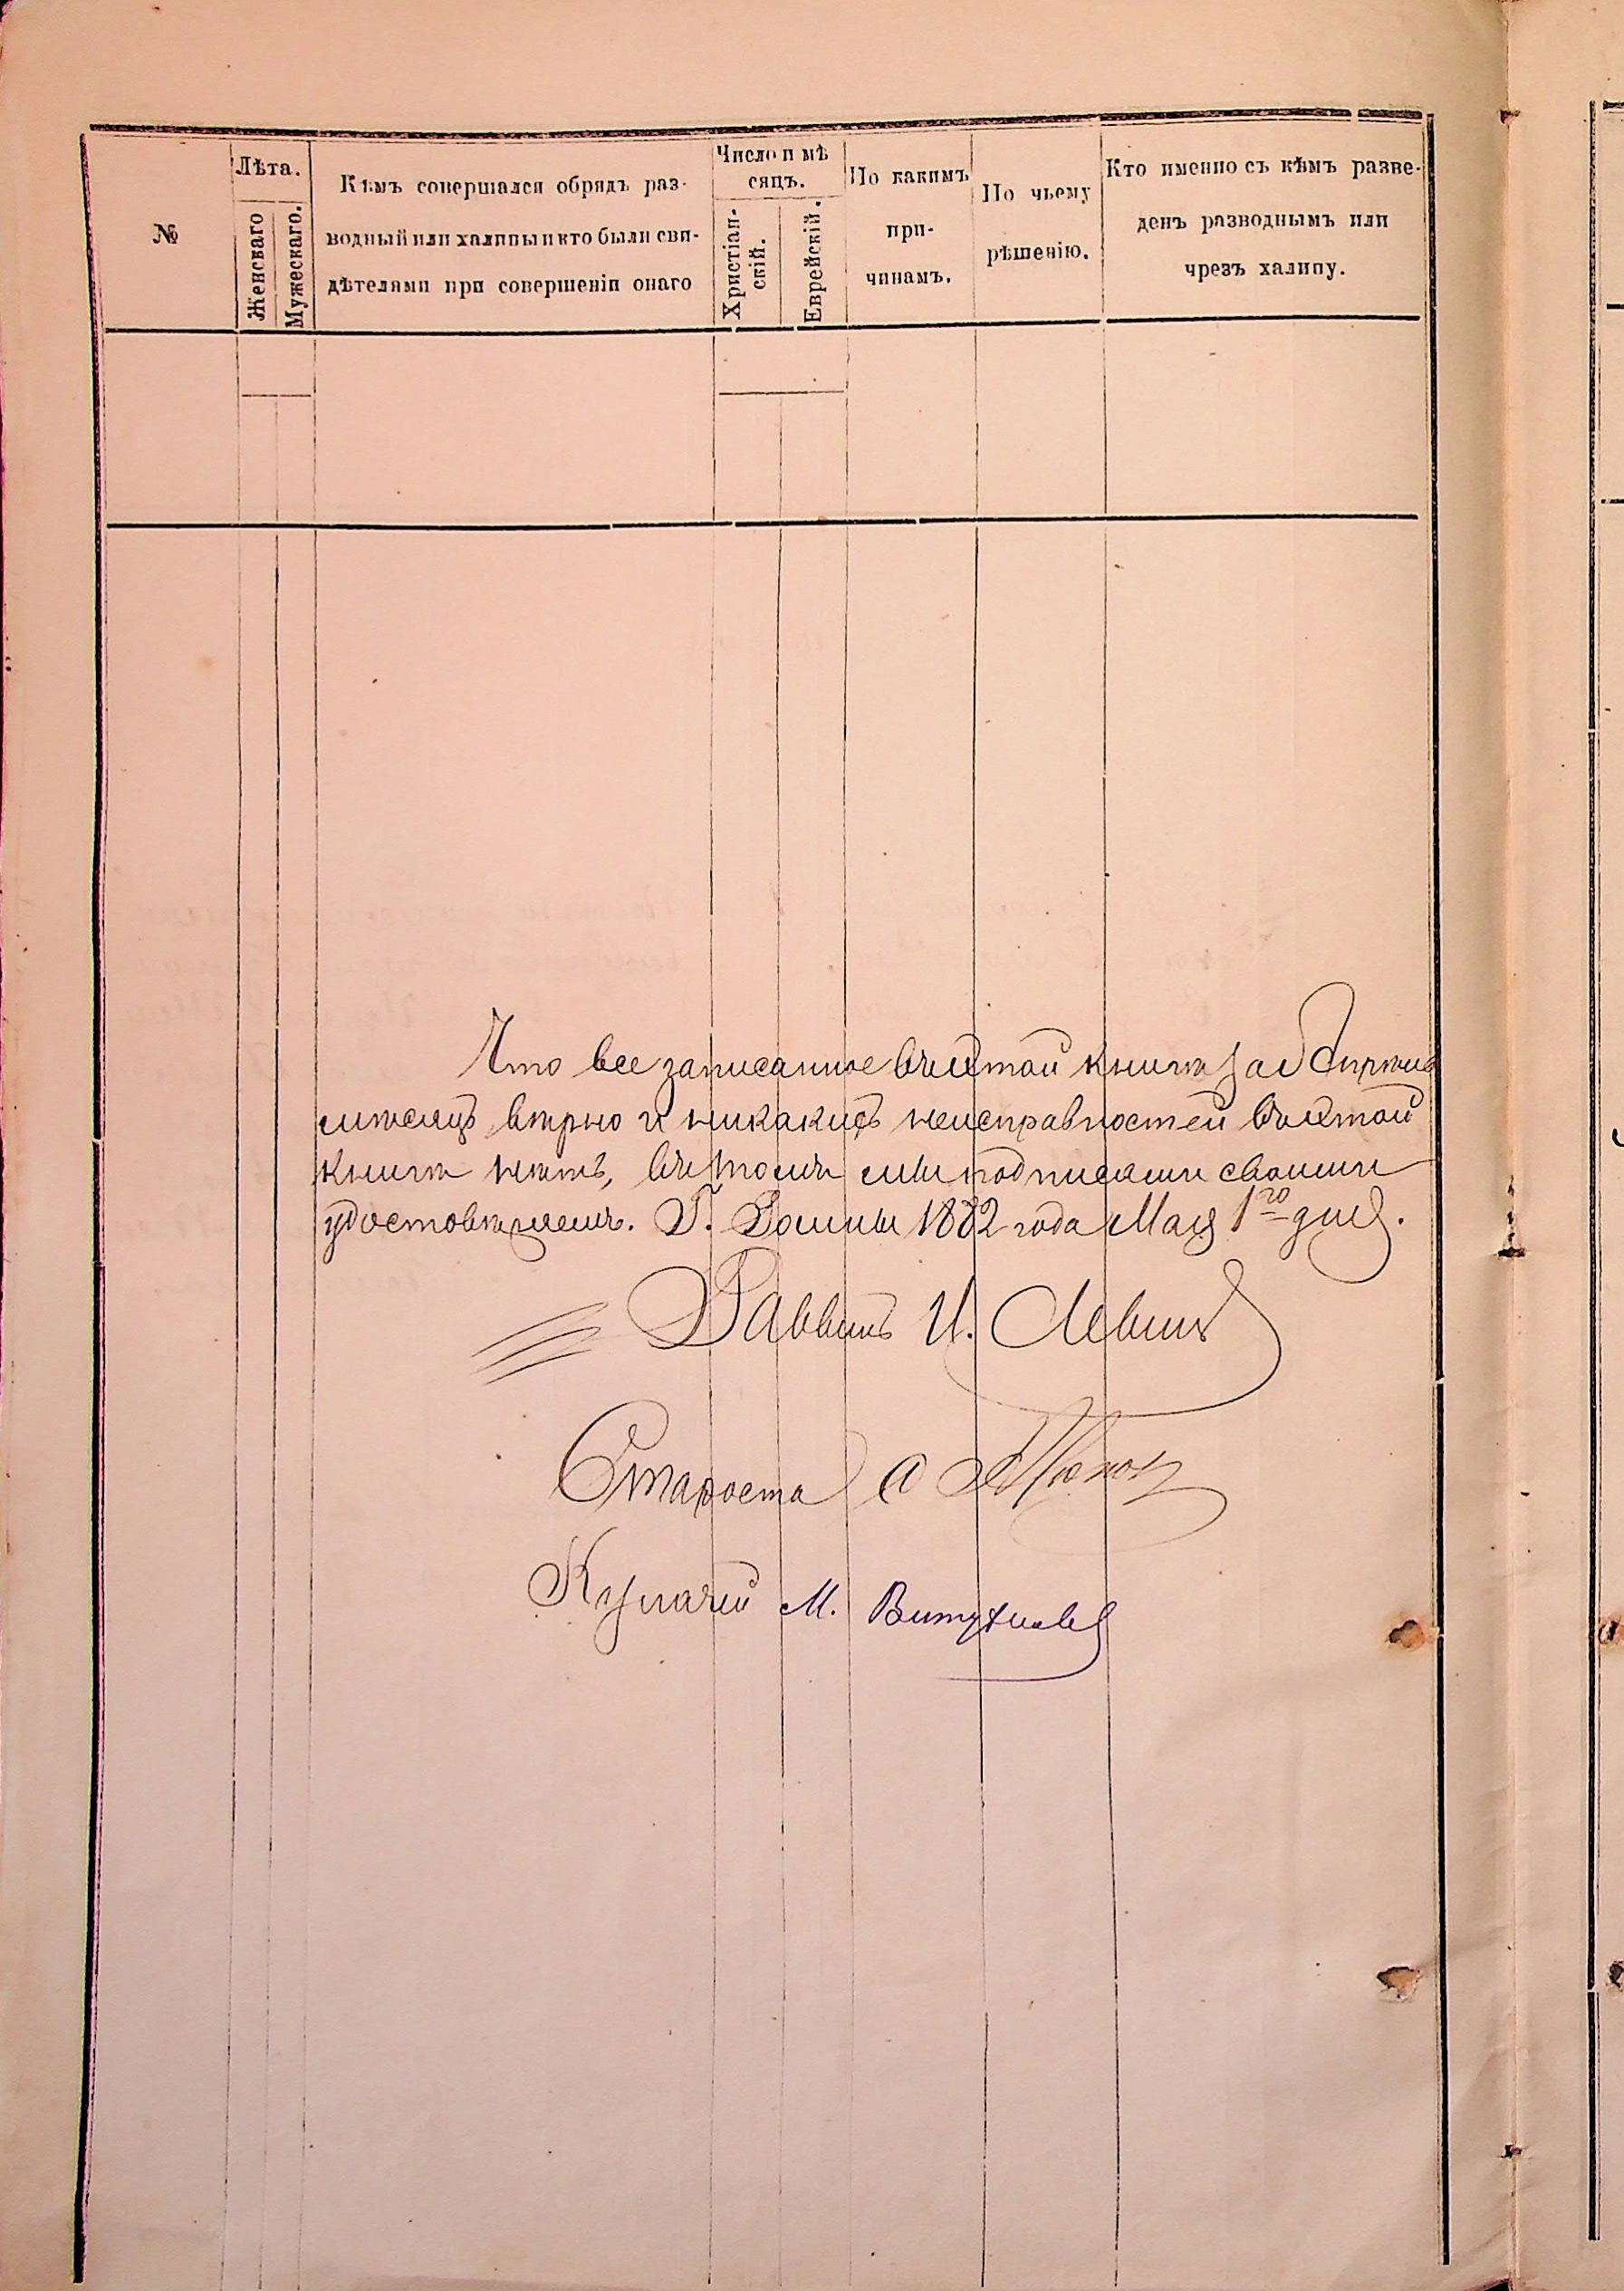 №
Лѣта.
Женскаго
Мужескаго.
Кѣмъ совершался обрядъ раз-
водный или халицы и кто были сви-
дѣтелями при совершеніи онаго
Число и мѣ
сяцъ.
Христіан-
скій.
Еврейскій.
По какимъ
при-
чинамъ.
По чьему
рѣшенію.
Кто именно съ кѣмъ разве-
денъ разводнымъ или
чрезъ халицу.
Что все записанное въ этой книгѣ за Апрѣль
мѣсяцъ вѣрно и никакихъ неисправностей въ этой
книгѣ нѣтъ, въ томъ мы подписями своими
удостовѣряемъ. Г. Ромны 1882 года Мая 1го дня.
Раввинъ И. Левинъ
Староста
Казначей М.